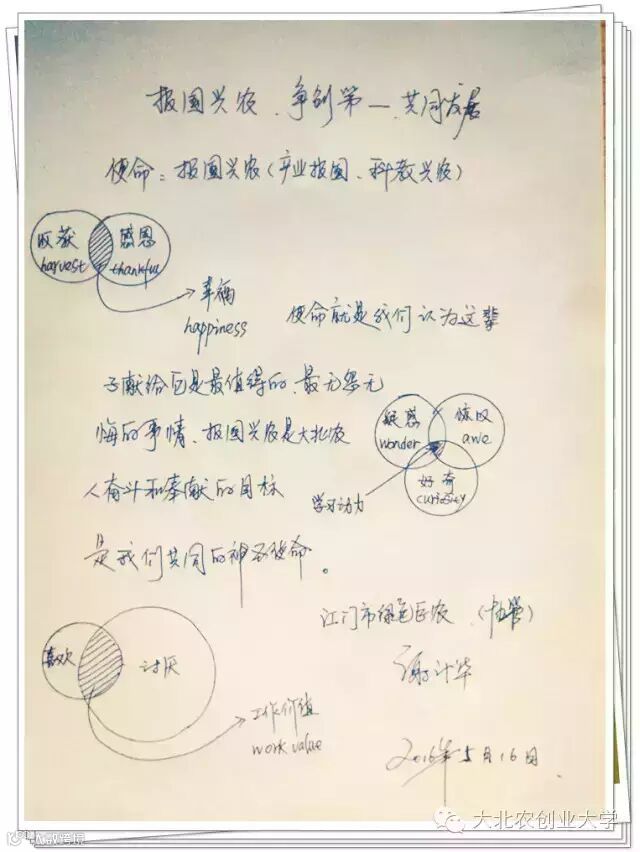 报国兴农、争创第一、共同发展
使命：报国兴农（产业报国、科教兴农）
收获 感恩
harvest thankful
幸福
happiness
使命就是我们认为这辈
子献给它是最值得的、最无怨无
悔的事情、报国兴农是大北农
人奋斗和奉献的目标
是我们共同的神圣使命。
疑惑 惊叹
wonder awe
好奇
curiosity
学习动力
江门市绿色巨农
喜欢 讨厌
工作价值
work value
2016年5月16日
大北农创业大学
大数跨境